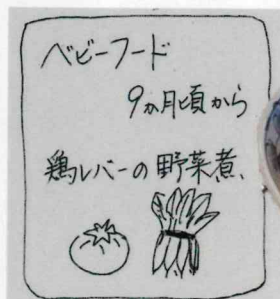 ベビーフード
9ヵ月頃から
鶏レバーの野菜煮、